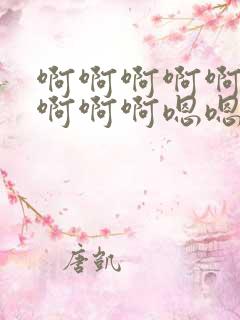 啊啊啊啊啊
啊啊啊嗯嗯
唐凯